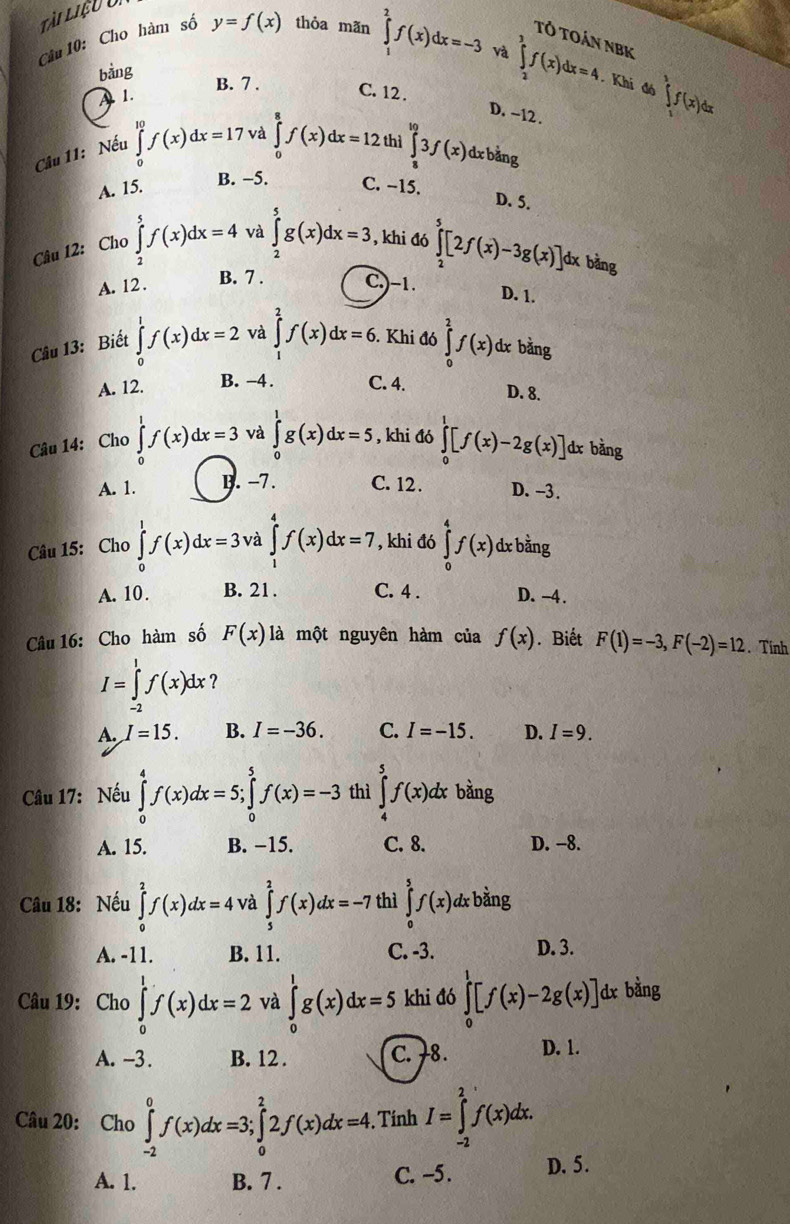 TÀI LIỆU
TỔ TOÁN NBK
Câu 10: Cho hàm số y = f(x) thỏa mãn ∫₁² f(x)dx = −3 và ∫₂³ f(x)dx = 4. Khi đó ∫₁³ f(x)dx
bằng
A. 1. B. 7. C. 12. D. −12.
Câu 11: Nếu ∫₀¹⁰ f(x)dx = 17 và ∫₀⁸ f(x)dx = 12 thì ∫₈¹⁰ 3f(x)dx bằng
A. 15. B. −5. C. −15. D. 5.
Câu 12: Cho ∫₂⁵ f(x)dx = 4 và ∫₂⁵ g(x)dx = 3, khi đó ∫₂⁵ [2f(x) − 3g(x)]dx bằng
A. 12. B. 7. C. −1. D. 1.
Câu 13: Biết ∫₀¹ f(x)dx = 2 và ∫₁² f(x)dx = 6. Khi đó ∫₀² f(x)dx bằng
A. 12. B. −4. C. 4. D. 8.
Câu 14: Cho ∫₀¹ f(x)dx = 3 và ∫₀¹ g(x)dx = 5, khi đó ∫₀¹ [f(x) − 2g(x)]dx bằng
A. 1. B. −7. C. 12. D. −3.
Câu 15: Cho ∫₀¹ f(x)dx = 3 và ∫₁⁴ f(x)dx = 7, khi đó ∫₀⁴ f(x)dx bằng
A. 10. B. 21. C. 4. D. −4.
Câu 16: Cho hàm số F(x) là một nguyên hàm của f(x). Biết F(1) = −3, F(−2) = 12. Tính
I = ∫₋₂¹ f(x)dx ?
A. I = 15. B. I = −36. C. I = −15. D. I = 9.
Câu 17: Nếu ∫₀⁴ f(x)dx = 5; ∫₀⁵ f(x) = −3 thì ∫₄⁵ f(x)dx bằng
A. 15. B. −15. C. 8. D. −8.
Câu 18: Nếu ∫₀² f(x)dx = 4 và ∫₅² f(x)dx = −7 thì ∫₀⁵ f(x)dx bằng
A. -11. B. 11. C. -3. D. 3.
Câu 19: Cho ∫₀¹ f(x)dx = 2 và ∫₀¹ g(x)dx = 5 khi đó ∫₀¹ [f(x) − 2g(x)]dx bằng
A. −3. B. 12. C. −8. D. 1.
Câu 20: Cho ∫₋₂⁰ f(x)dx = 3; ∫₀² 2f(x)dx = 4. Tính I = ∫₋₂² f(x)dx.
A. 1. B. 7. C. −5. D. 5.